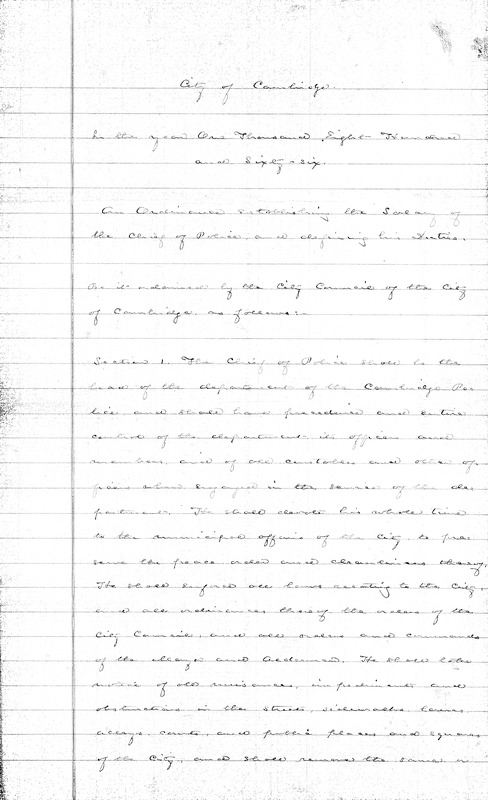 City of Cambridge.
In the year One Thousand Eight Hundred
and Sixty-six.
An Ordinance establishing the Salary of
the Chief of Police, and defining his Duties.
Be it ordained by the City Council of the City
of Cambridge, as follows:-
Section 1. The Chief of Police shall be the
head of the department of the Cambridge Po-
lice, and shall have precedence and entire
control of the department, its officers and
members, and of all constables and other of-
ficers when engaged in the service of the de-
partment. He shall devote his whole time
to the municipal affairs of the City, to pre-
serve the peace order and cleanliness thereof.
He shall enforce all laws relating to the City,
and all ordinances thereof the orders of the
City Council, and all orders and commands
of the Mayor and Aldermen. He shall take
notice of all nuisances, impediments and
obstructions in the streets, sidewalks, lanes,
alleys, courts, and public places and squares
of the City, and shall remove the same or